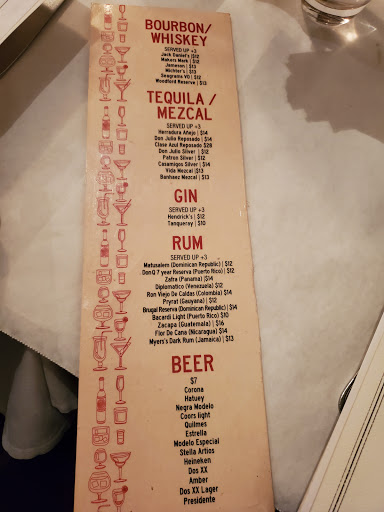 BOURBON/
WHISKEY
SERVED UP +3
Jack Daniel's |$12
Makers Mark | $12
Jameson | $13
Michter's | $13
Seagrams VO | $12
Woodford Reserve | $13
TEQUILA /
MEZCAL
SERVED UP +3
Herradura Añejo | $14
Don Julio Reposado | $14
Clase Azul Reposado $28
Don Julio Silver | $12
Patron Silver | $12
Casamigos Silver | $14
Vida Mezcal |$13
Banhaez Mezcal | $13
GIN
SERVED UP +3
Hendrick's | $12
Tanqueray | $10
RUM
SERVED UP +3
Matusalem (Dominican Republic) | $12
Don Q 7 year Reserva (Puerto Rico) | $12
Zafra (Panama) |$14
Diplomatico (Venezuela) $12
Ron Viejo De Caldas (Colombia) $14
Pyrat (Gauyana) | $12
Brugal Reserva (Dominican Republic) | $14
Bacardi Light (Puerto Rico) $10
Zacapa (Guatemala) | $16
Flor De Cana (Nicaragua) $14
Myers's Dark Rum (Jamaica) | $13
BEER
$7
Corona
Hatuey
Negra Modelo
Coors light
Quilmes
Estrella
Modelo Especial
Stella Artios
Heineken
Dos XX
Amber
Dos XX Lager
Presidente